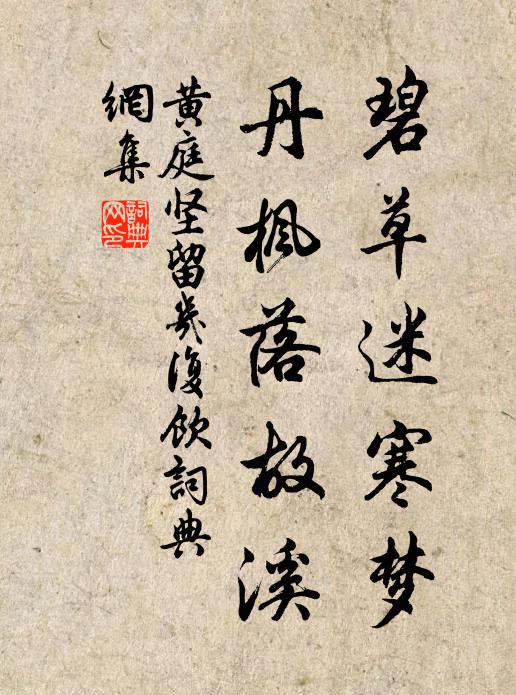 碧草迷寒梦
丹枫落故溪
黄庭坚留几复饮词典
網集
詞典網印